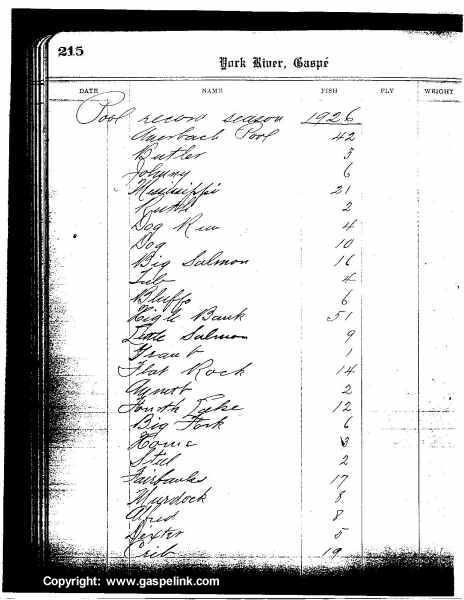 215
York River, Gaspé
DATE NAME FISH FLY WEIGHT
Pool record season 1926
Auerbach Pool 42
Butler 3
Johnny 6
Mississippi 21
Ruth 2
Dog Run 4
Dog 10
Big Salmon 16
4
Bluffs 6
High Bank 51
Little Salmon 9
Grant 1
Flat Rock 14
2
Fourth Lake 12
Big Fork 6
Home 3
2
Fairbanks 17
Murdock 8
Alfred 8
Dexter 5
Crib 19
Copyright: www.gaspelink.com